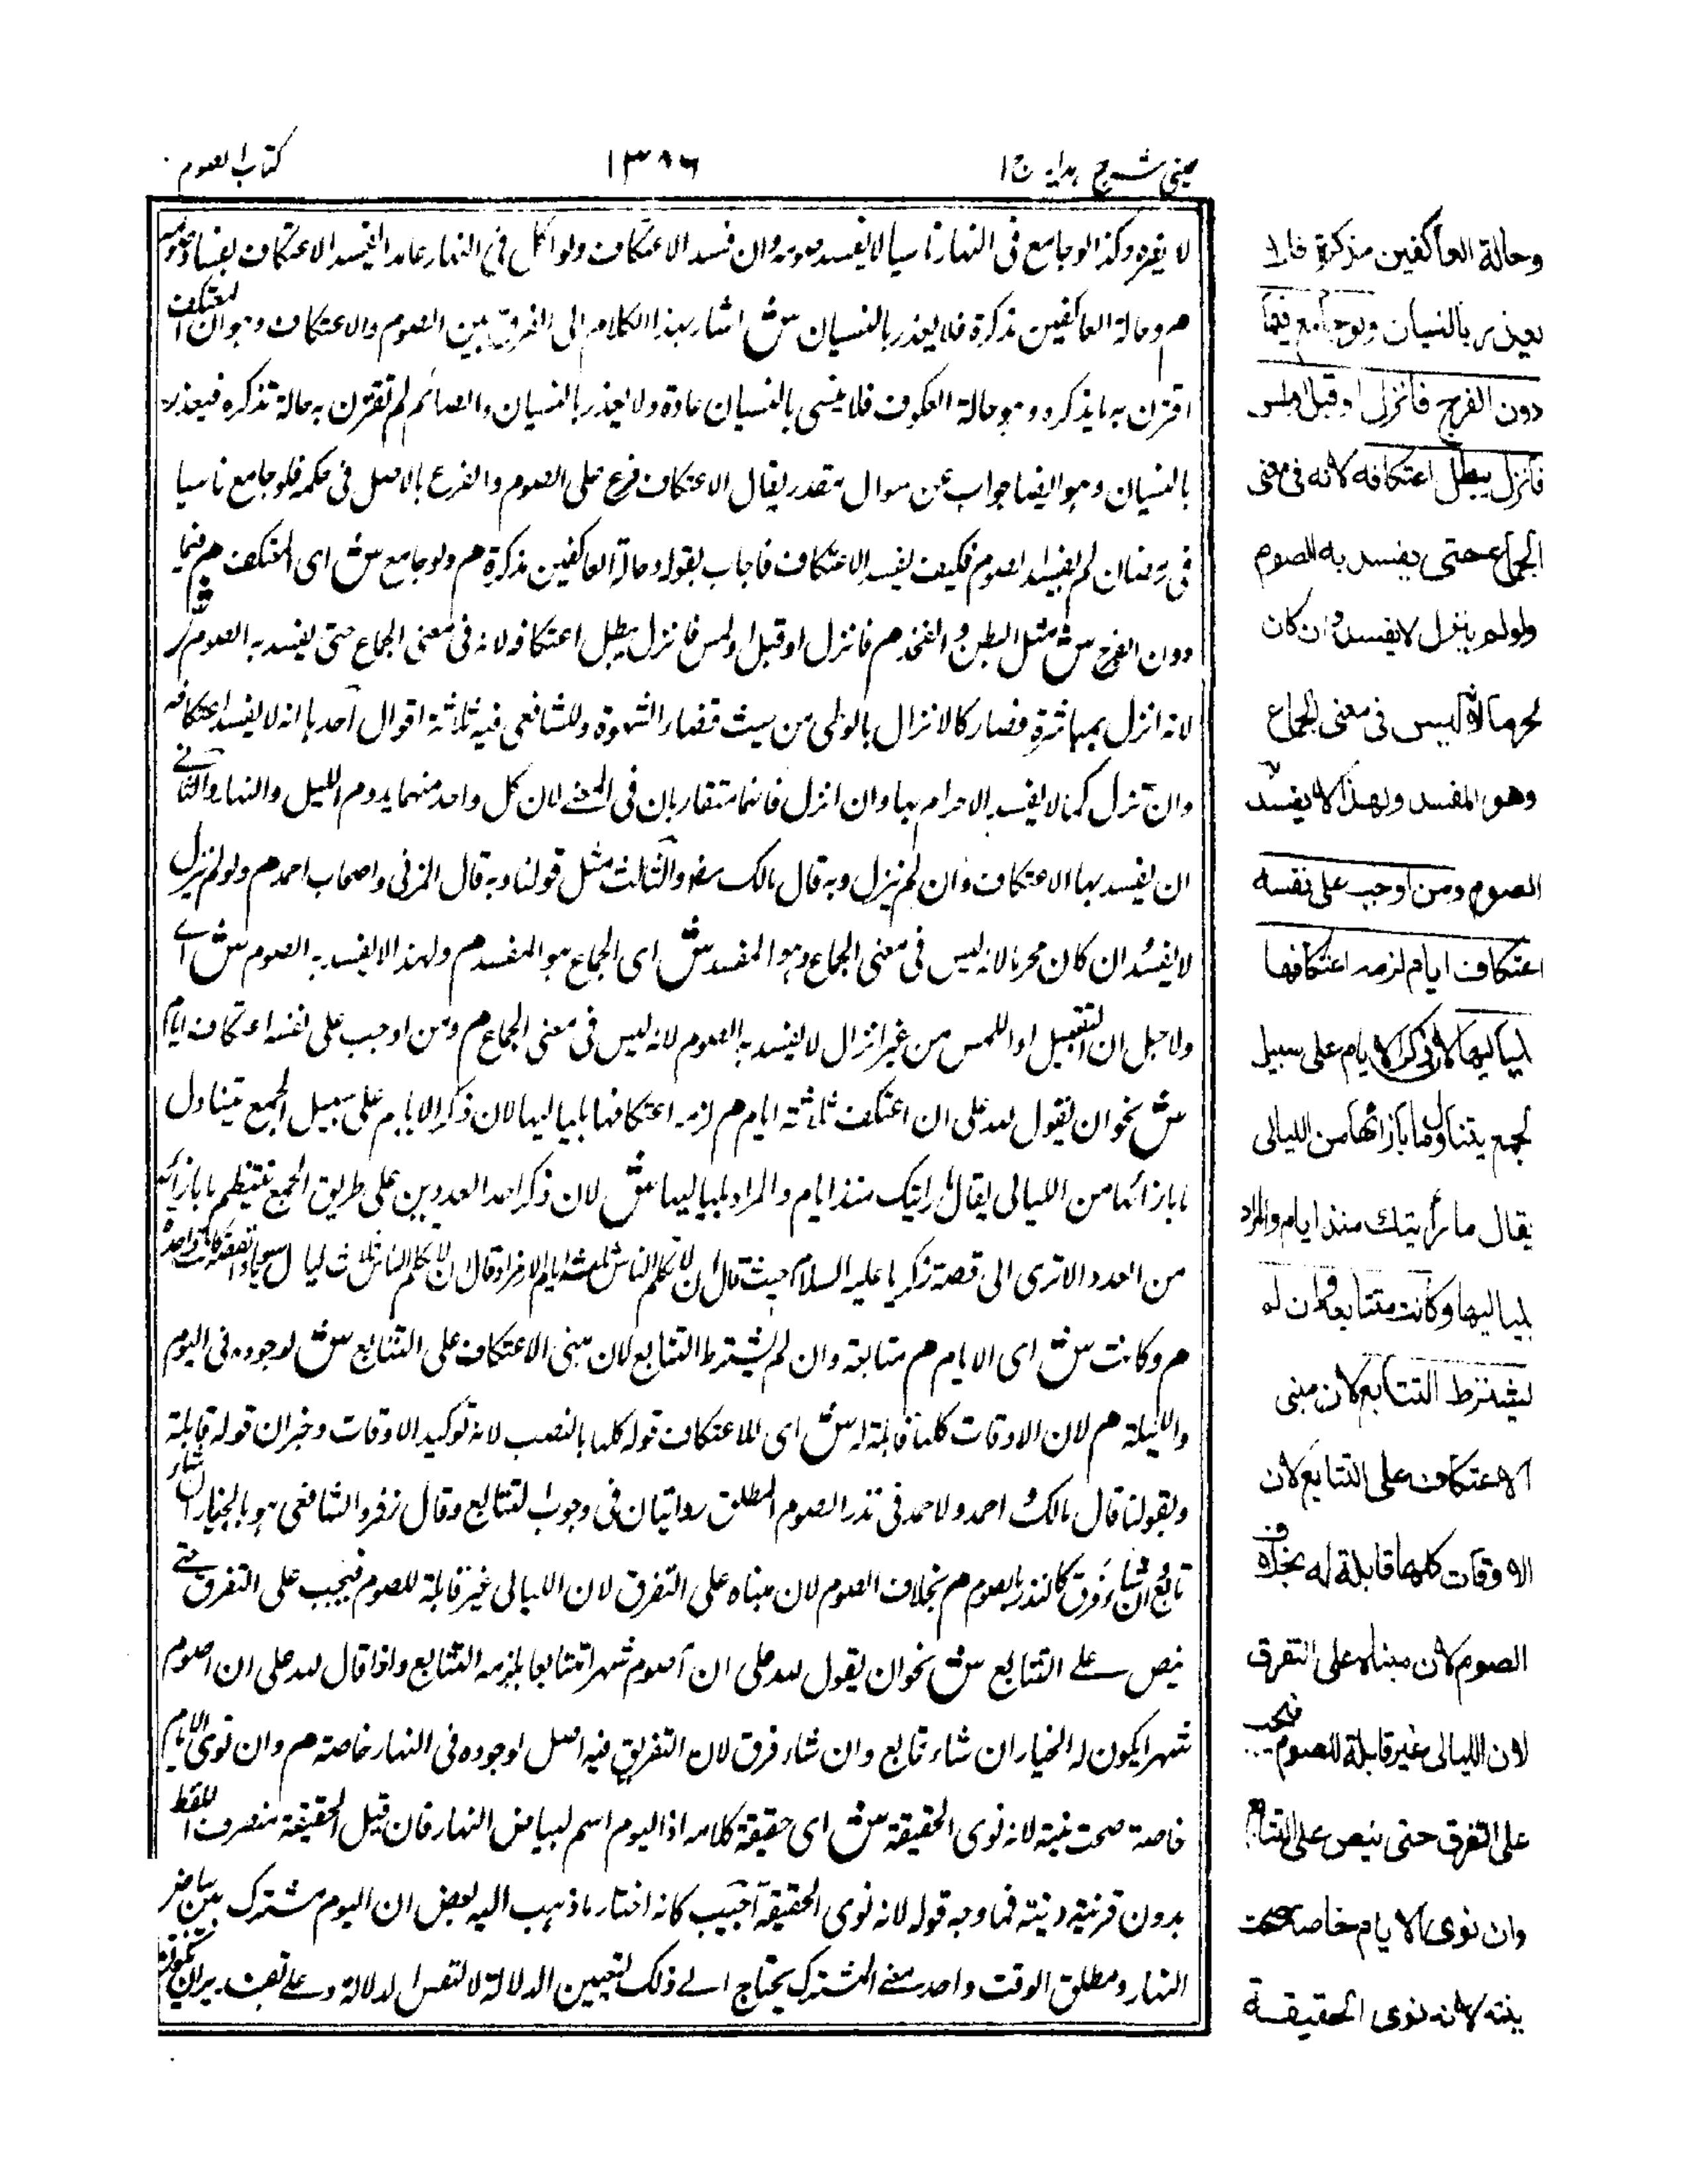 عینی شرح ہدایہ ج ١
١٣٨٦
كتاب الصوم
لا يضره وكذا لو جامع فى النهار ناسيا لا يفسد صومه وان فسد الاعتكاف ولو اكل فى النهار عامدا يفسد الاعتكاف لفساد صومه
م وحالة العاكفين مذكرة فلا يعذر بالنسيان ش اشار بهذا الكلام الى الفرق بين الصوم والاعتكاف وهو ان المعتكف
اقترن به ما يذكره وهو حالة العكوف فلا ينسى بالنسيان عادة ولا يعذر بالنسيان والصائم لم تقترن به حالة تذكره فيعذر
بالنسيان وهو ايضا جواب عن سوال مقدر يقال الاعتكاف فرع على الصوم والفرع بالاصل فى حكمه فلو جامع ناسيا
فى رمضان لم يفسد الصوم فكيف يفسد الاعتكاف فاجاب بقوله وحالة العاكفين مذكرة م ولو جامع ش اى المعتكف م فيما
دون الفرج ش مثل البطن والفخذ م فانزل او قبل او لمس فانزل يبطل اعتكافه لانه فى معنى الجماع حتى يفسد به الصوم ش
لانه انزل بمباشرة فصار كالانزال بالوطى من حيث قضاء الشهوة وللشافعى فيه ثلاثة اقوال احدها انه لا يفسد اعتكافه
وان نزل كما لا يفسد الاحرام بها وان انزل فانهما متقاربان فى المعنى لان كل واحد منهما يدوم الليل والنهار والثانى
ان يفسد بها الاعتكاف وان لم ينزل وبه قال مالك رضه والثالث مثل قولنا وبه قال المزنى واصحاب احمد م ولو لم ينزل
لا يفسد ان كان محرما لانه ليس فى معنى الجماع وهو المفسد ش اى الجماع هو المفسد م ولهذا لا يفسد به الصوم ش اى
ولاجل ان التقبيل او اللمس من غير انزال لا يفسد به الصوم لانه ليس فى معنى الجماع م ومن اوجب على نفسه اعتكاف ايام
ش نحو ان يقول لله على ان اعتكف ثلاثة ايام م لزمه اعتكافها بلياليها لان ذكر الايام على سبيل الجمع يتناول
ما بازائها من الليالى يقال ما رايتك منذ ايام والمراد بلياليها ش لان ذكر احد العددين على طريق الجمع ينتظم ما بازائه
من العدد الا ترى الى قصة زكريا عليه السلام حيث قال ان لا تكلم الناس ثلثة ايام الا رمزا وقال ان لا تكلم الناس ثلاث ليال سويا والقصة كانت واحدة
م وكانت ش اى الايام م متتابعة وان لم يشترط التتابع لان مبنى الاعتكاف على التتابع ش لوجوده فى اليوم
والليلة م لان الاوقات كلها قابلة له ش اى للاعتكاف قوله كلها بالنصب لانه توكيد الاوقات وخبر ان قوله قابلة
وبقولنا قال مالك واحمد ولاحمد فى نذر الصوم المطلق روايتان فى وجوب التتابع وقال زفر والشافعى هو بالخيار ان شاء
تابع وان شاء فرق كالنذر بالصوم م بخلاف الصوم لان مبناه على التفرق لان الليالى غير قابلة للصوم فيجب على التفرق حتى
ينص على التتابع ش نحو ان يقول لله على ان اصوم شهرا متتابعا يلزمه التتابع واذا قال لله على ان اصوم
شهرا يكون له الخيار ان شاء تابع وان شاء فرق لان التفريق فيه اصل لوجوده فى النهار خاصة م وان نوى الايام
خاصة صحت نيته لانه نوى الحقيقة ش اى حقيقة كلامه اذ اليوم اسم لبياض النهار فان قيل الحقيقة منصرف اللفظ
بدون قرينة ونيته فما وجه قوله لانه نوى الحقيقة اجيب كانه اختار ما ذهب اليه بعض ان اليوم مشترك بين بياض
النهار ومطلق الوقت واحد معنى المشترك يحتاج الى ذلك لتعيين الدلالة لا لنفس الدلالة وعلى
وحالة العاكفين مذكرة فلا
يعذر بالنسيان ولو جامع فيما
دون الفرج فانزل او قبل او لمس
فانزل يبطل اعتكافه لانه فى معنى
الجماع حتى يفسد به الصوم
ولو لم ينزل لا يفسد وان كان
محرما لانه ليس فى معنى الجماع
وهو المفسد ولهذا لا يفسد به
الصوم ومن اوجب على نفسه
اعتكاف ايام لزمه اعتكافها
بلياليها لان ذكر الايام على سبيل
الجمع يتناول ما بازائها من الليالى
يقال ما رأيتك منذ ايام والمراد
بلياليها وكانت متتابعة وان لم
يشترط التتابع لان مبنى
الاعتكاف على التتابع لان
الاوقات كلها قابلة له بخلاف
الصوم لان مبناه على التفرق
لان الليالى غير قابلة للصوم فيجب
على التفرق حتى ينص على التتابع
وان نوى الايام خاصة صحت
نيته لانه نوى الحقيقة